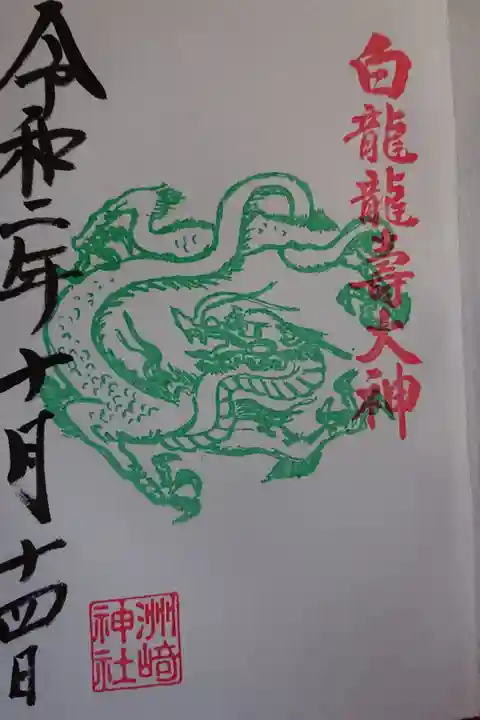 白龍龍壽大神
洲崎
神社
令和二年十月十四日